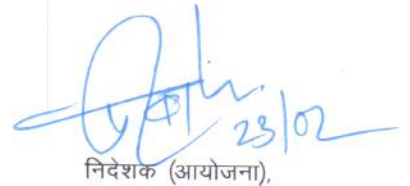 23/02
निदेशक (आयोजना),